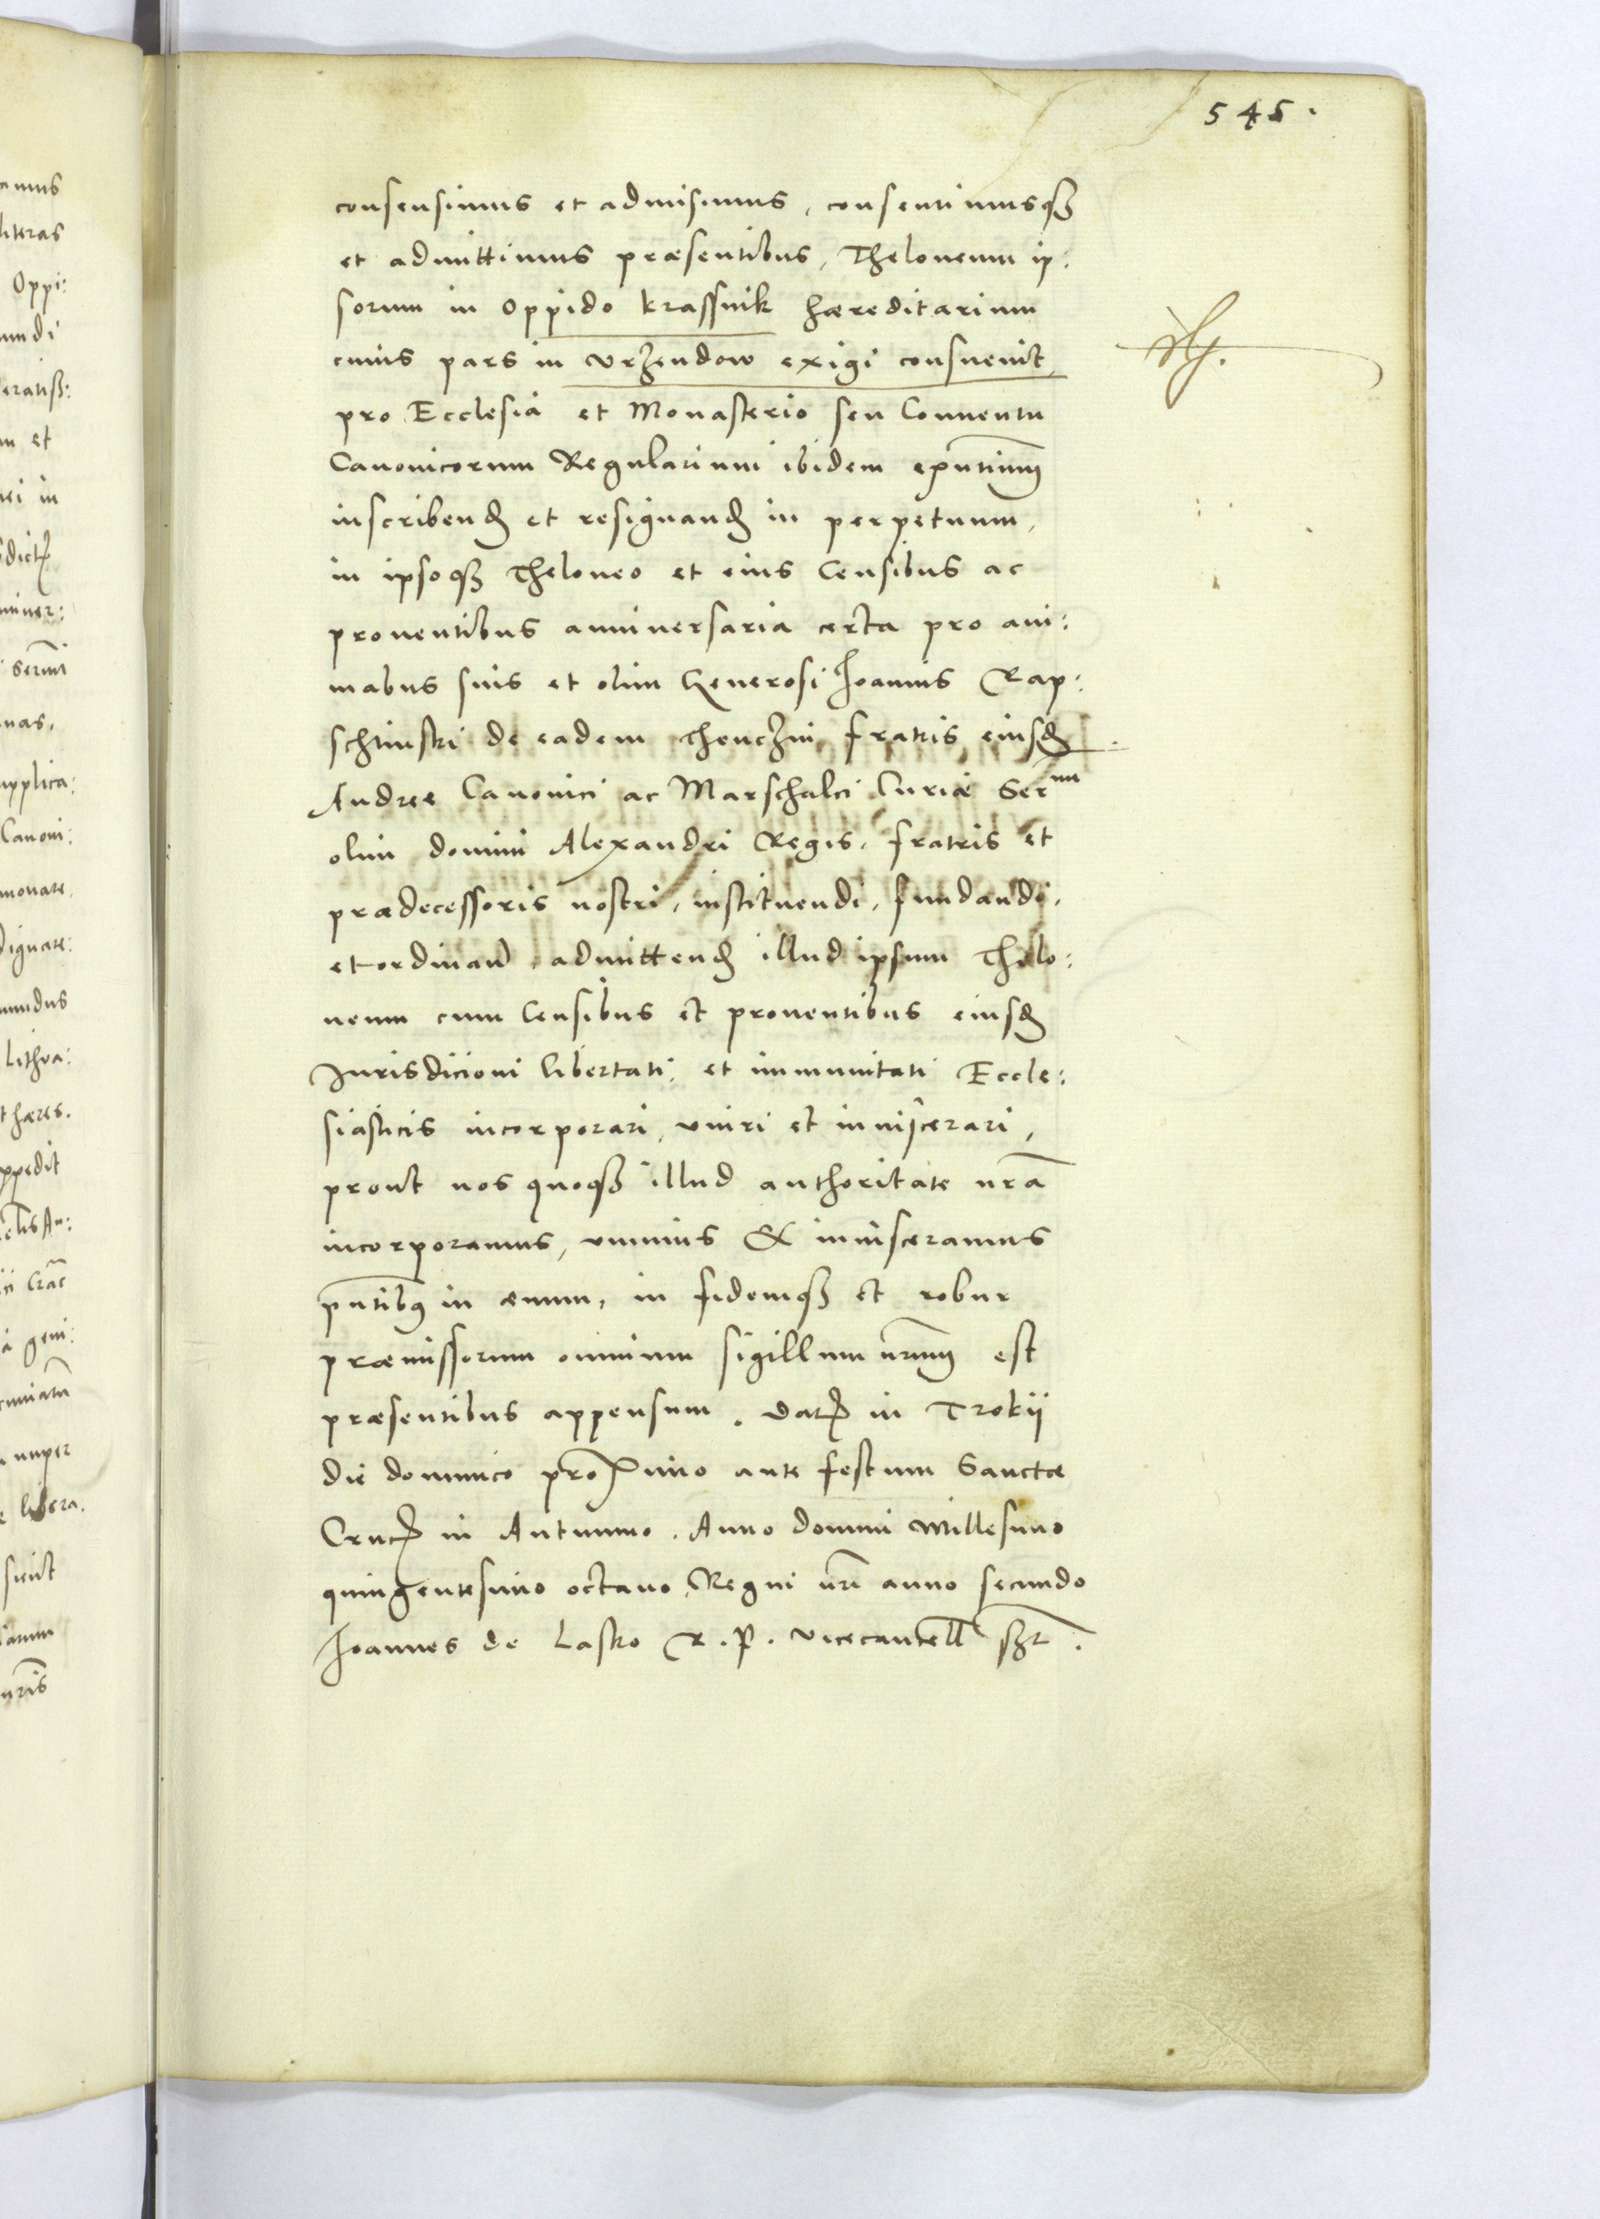 545.
consensimus et admisimus, consentimusq3
et admittimus præsentibus, Theloneum ip:
sorum in Oppido Krassnik hæreditarium
cuius pars in Vrzendow exigi consuevit,
pro Ecclesia et Monasterio seu Conventu
Canonicorum Regularium ibidem
inscribend et resignand in perpetuum,
in ipsoq3 Theloneo et eius Censibus ac
proventibus anniversaria certa pro ani:
mabus suis et olim Generosi Joannis Rap:
schtinski de eadem Thenczin, fratris eiusd
Andreæ Canonici ac Marschalci Curiæ Ser
olim domini Alexandri Regis, fratris et
prædecessoris nostri, instituendi, fundandi,
et ordinand, admittend illud ipsum Thelo:
neum cum Censibus et proventibus eiusd
Jurisdicioni libertati, et immunitati Eccle:
siasticis incorporari, uniri et inviscerari,
prout nos quoq3 illud authoritate nr̃a
incorporamus, unimus & invisceramus
pñtibus in ævum, in fidemq3 et robur
præmissorum omnium sigillum nr̃um est
præsentibus appensum. Dat in Trokij
die dominico proximo ante festum Sanctæ
Cruc in Autumno. Anno domini Millesimo
quingentesimo octavo, Regni nr̃i anno secundo
Joannes de Lasko R. P. Vicecancell
amus
literas
Oppi:
undi
m et
ei in
nas,
Canoni:
dignare:
mundus
Lithva:
nuper
libera.
sicut